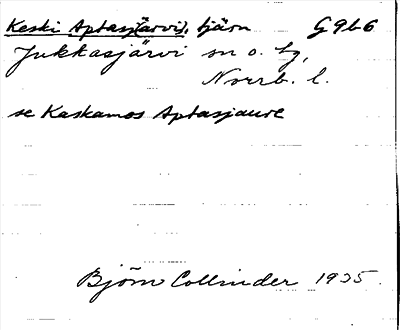 Keski Aptasj(ärvi), tjärn G9b6
Jukkasjärvi sn o. tg,
Norrb. l.
se Kaskamos Aptasjaure
Björn Collinder 1935.